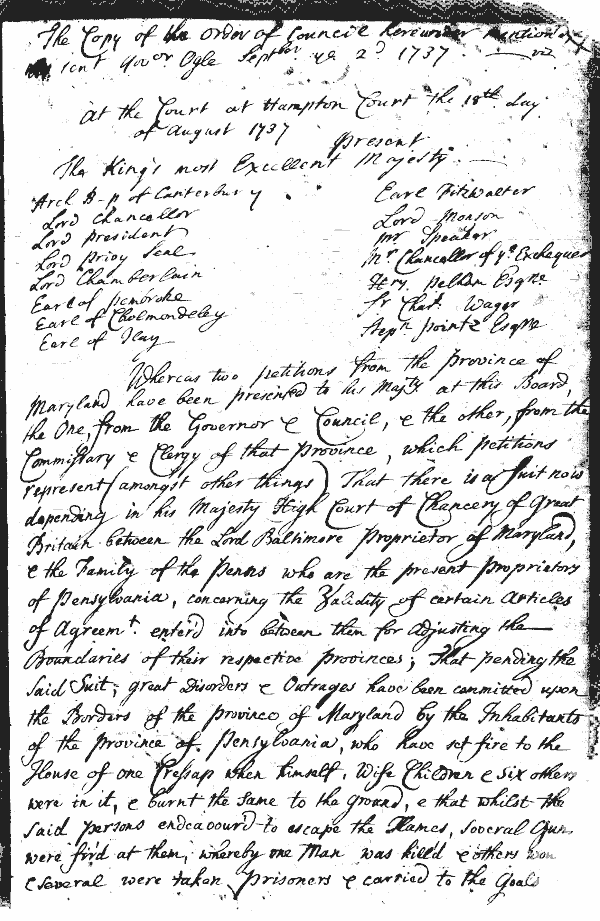 The Copy of the Order of Council hereunder mention'd
sent Govor Ogle Septbr ye 2d 1737 viz
At the Court at Hampton Court the 18th day
of August 1737
Present
The King's most Excellent Majesty
Arch B-p of Canterbury
Lord Chancellor
Lord President
Lord Privy Seal
Lord Chamberlain
Earl of Pembroke
Earl of Cholmondeley
Earl of Ilay
Earl Fitzwalter
Lord Monson
Mr Speaker
Mr Chancellor of ye Exchequer
Hry. Pelham Esqre
Sr Chas. Wager
Steph Pointz Esqre
Whereas two petitions from the Province of
Maryland have been presented to his Majty at this Board,
the One, from the Governor & Council, & the other, from the
Commissary & Clergy of that Province, which petitions
represent (amongst other things) That there is a Suit now
depending in his Majesty High Court of Chancery of Great
Britain between the Lord Baltimore Proprietor of Maryland,
& the Family of the Penns who are the present Proprietors
of Pensylvania, concerning the Validity of certain Articles
of Agreemt. enter'd into between them for adjusting the
Boundaries of their respective provinces; That pending the
said Suit; great Disorders & Outrages have been committed upon
the Borders of the province of Maryland by the Inhabitants
of the Province of Pensylvania, who have set fire to the
House of one Cressap when himself, Wife Children & six others
were in it, & burnt the same to the ground, & that whilst the
said persons endeavour'd to escape the Flames, several Guns
were fir'd at them, whereby one Man was kill'd & others
& several were taken Prisoners & carried to the Goals